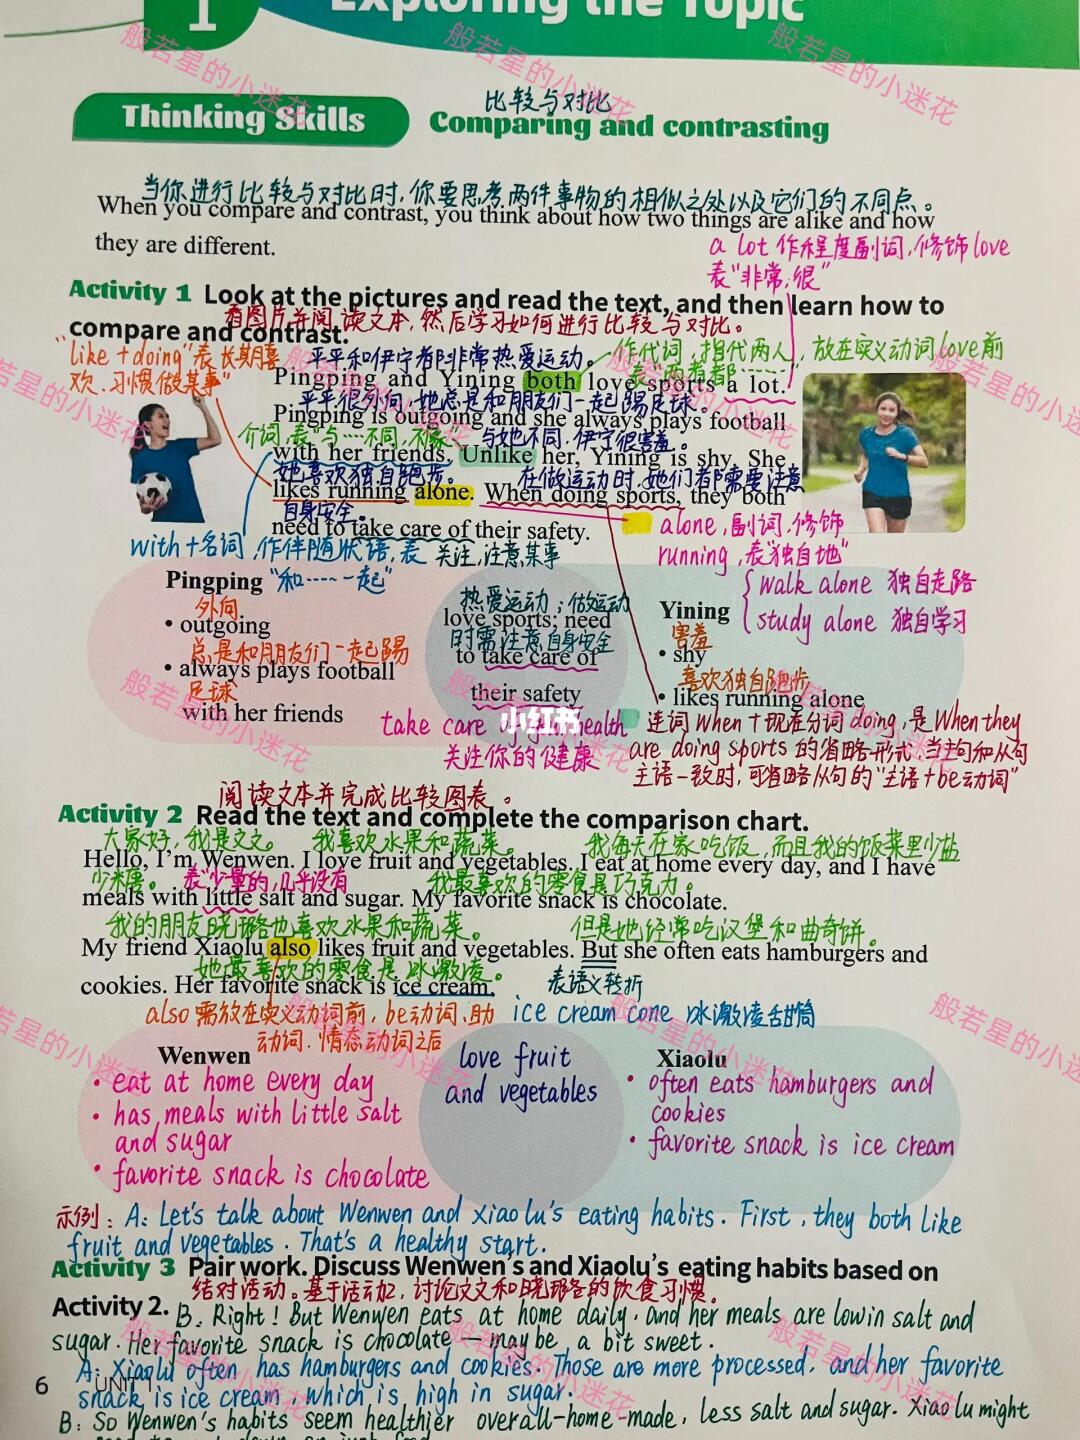 1
Exploring the Topic
比较与对比
Thinking Skills Comparing and contrasting
当你进行比较与对比时，你要思考两件事物的相似之处以及它们的不同点。
When you compare and contrast, you think about how two things are alike and how
they are different.
a lot 作程度副词，修饰love
表“非常，很”
Activity 1 Look at the pictures and read the text, and then learn how to
compare and contrast.
看图片并阅读文本，然后学习如何进行比较与对比。
“like + doing”表长期喜
欢、习惯做某事”
平平和伊宁都非常热爱运动。
作代词，指代两人，放在实义动词love前
表“两者都……”
Pingping and Yining both love sports a lot.
平平很外向，她总是和朋友们一起踢足球。
Pingping is outgoing and she always plays football
介词，表“与…不同，不象”
与她不同，伊宁很害羞。
with her friends. Unlike her, Yining is shy. She
她喜欢独自跑步。
在做运动时，她们都需要注意
likes running alone. When doing sports, they both
自身安全。
need to take care of their safety.
alone，副词，修饰
running，表“独自地”
with+名词，作伴随状语，表
“和……一起”
关注，注意某事
walk alone 独自走路
study alone 独自学习
Pingping
外向
• outgoing
总是和朋友们一起踢
• always plays football
足球
with her friends
热爱运动；做运动
love sports; need
时需注意自身安全
to take care of
their safety
Yining
害羞
• shy
喜欢独自跑步
• likes running alone
take care of your health
关注你的健康
小红书
连词When+现在分词doing，是When they
are doing sports的省略形式，当主句和从句
主语一致时，可省略从句的“主语+be动词”
阅读文本并完成比较图表。
Activity 2 Read the text and complete the comparison chart.
大家好，我是文文。 我喜欢水果和蔬菜。 我每天在家吃饭，而且我的饭菜里少盐
Hello, I'm Wenwen. I love fruit and vegetables. I eat at home every day, and I have
少糖。 表“少量的，几乎没有 我最喜欢的零食是巧克力。
meals with little salt and sugar. My favorite snack is chocolate.
我的朋友晓璐也喜欢水果和蔬菜。 但是她经常吃汉堡和曲奇饼。
My friend Xiaolu also likes fruit and vegetables. But she often eats hamburgers and
她最喜欢的零食是冰激凌。
cookies. Her favorite snack is ice cream.
表语义转折
also 需放在实义动词前，be动词、助
动词、情态动词之后
ice cream cone 冰激凌甜筒
Wenwen
• eat at home every day
• has meals with little salt
and sugar
• favorite snack is chocolate
love fruit
and vegetables
Xiaolu
• often eats hamburgers and
cookies
• favorite snack is ice cream
示例：A: Let's talk about Wenwen and Xiaolu's eating habits. First, they both like
fruit and vegetables. That's a healthy start.
Activity 3 Pair work. Discuss Wenwen's and Xiaolu's eating habits based on
Activity 2.
结对活动。基于活动2，讨论文文和晓璐各的饮食习惯。
B: Right! But Wenwen eats at home daily, and her meals are low in salt and
sugar. Her favorite snack is chocolate — maybe a bit sweet.
A: Xiaolu often has hamburgers and cookies. Those are more processed, and her favorite
snack is ice cream, which is high in sugar.
6 UNIT 1
B: So Wenwen's habits seem healthier overall-home-made, less salt and sugar. Xiaolu might
般若星的小迷花